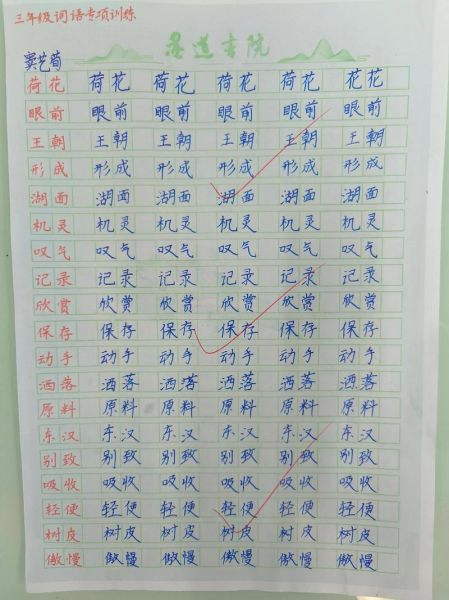 三年级词语专项训练
善道书院
窦艺荀
荷花 荷花 荷花 荷花 荷花 花花
眼前 眼前 眼前 眼前 眼前 眼前
王朝 王朝 王朝 王朝 王朝 王朝
形成 形成 形成 形成 形成 形成
湖面 湖面 湖面 湖面 湖面 湖面
机灵 机灵 机灵 机灵 机灵 机灵
叹气 叹气 叹气 叹气 叹气 叹气
记录 记录 记录 记录 记录 记录
欣赏 欣赏 欣赏 欣赏 欣赏 欣赏
保存 保存 保存 保存 保存 保存
动手 动手 动手 动手 动手 动手
洒落 洒落 洒落 洒落 洒落 洒落
原料 原料 原料 原料 原料 原料
东汉 东汉 东汉 东汉 东汉 东汉
别致 别致 别致 别致 别致 别致
吸收 吸收 吸收 吸收 吸收 吸收
轻便 轻便 轻便 轻便 轻便 轻便
树皮 树皮 树皮 树皮 树皮 树皮
傲慢 傲慢 傲慢 傲慢 傲慢 傲慢